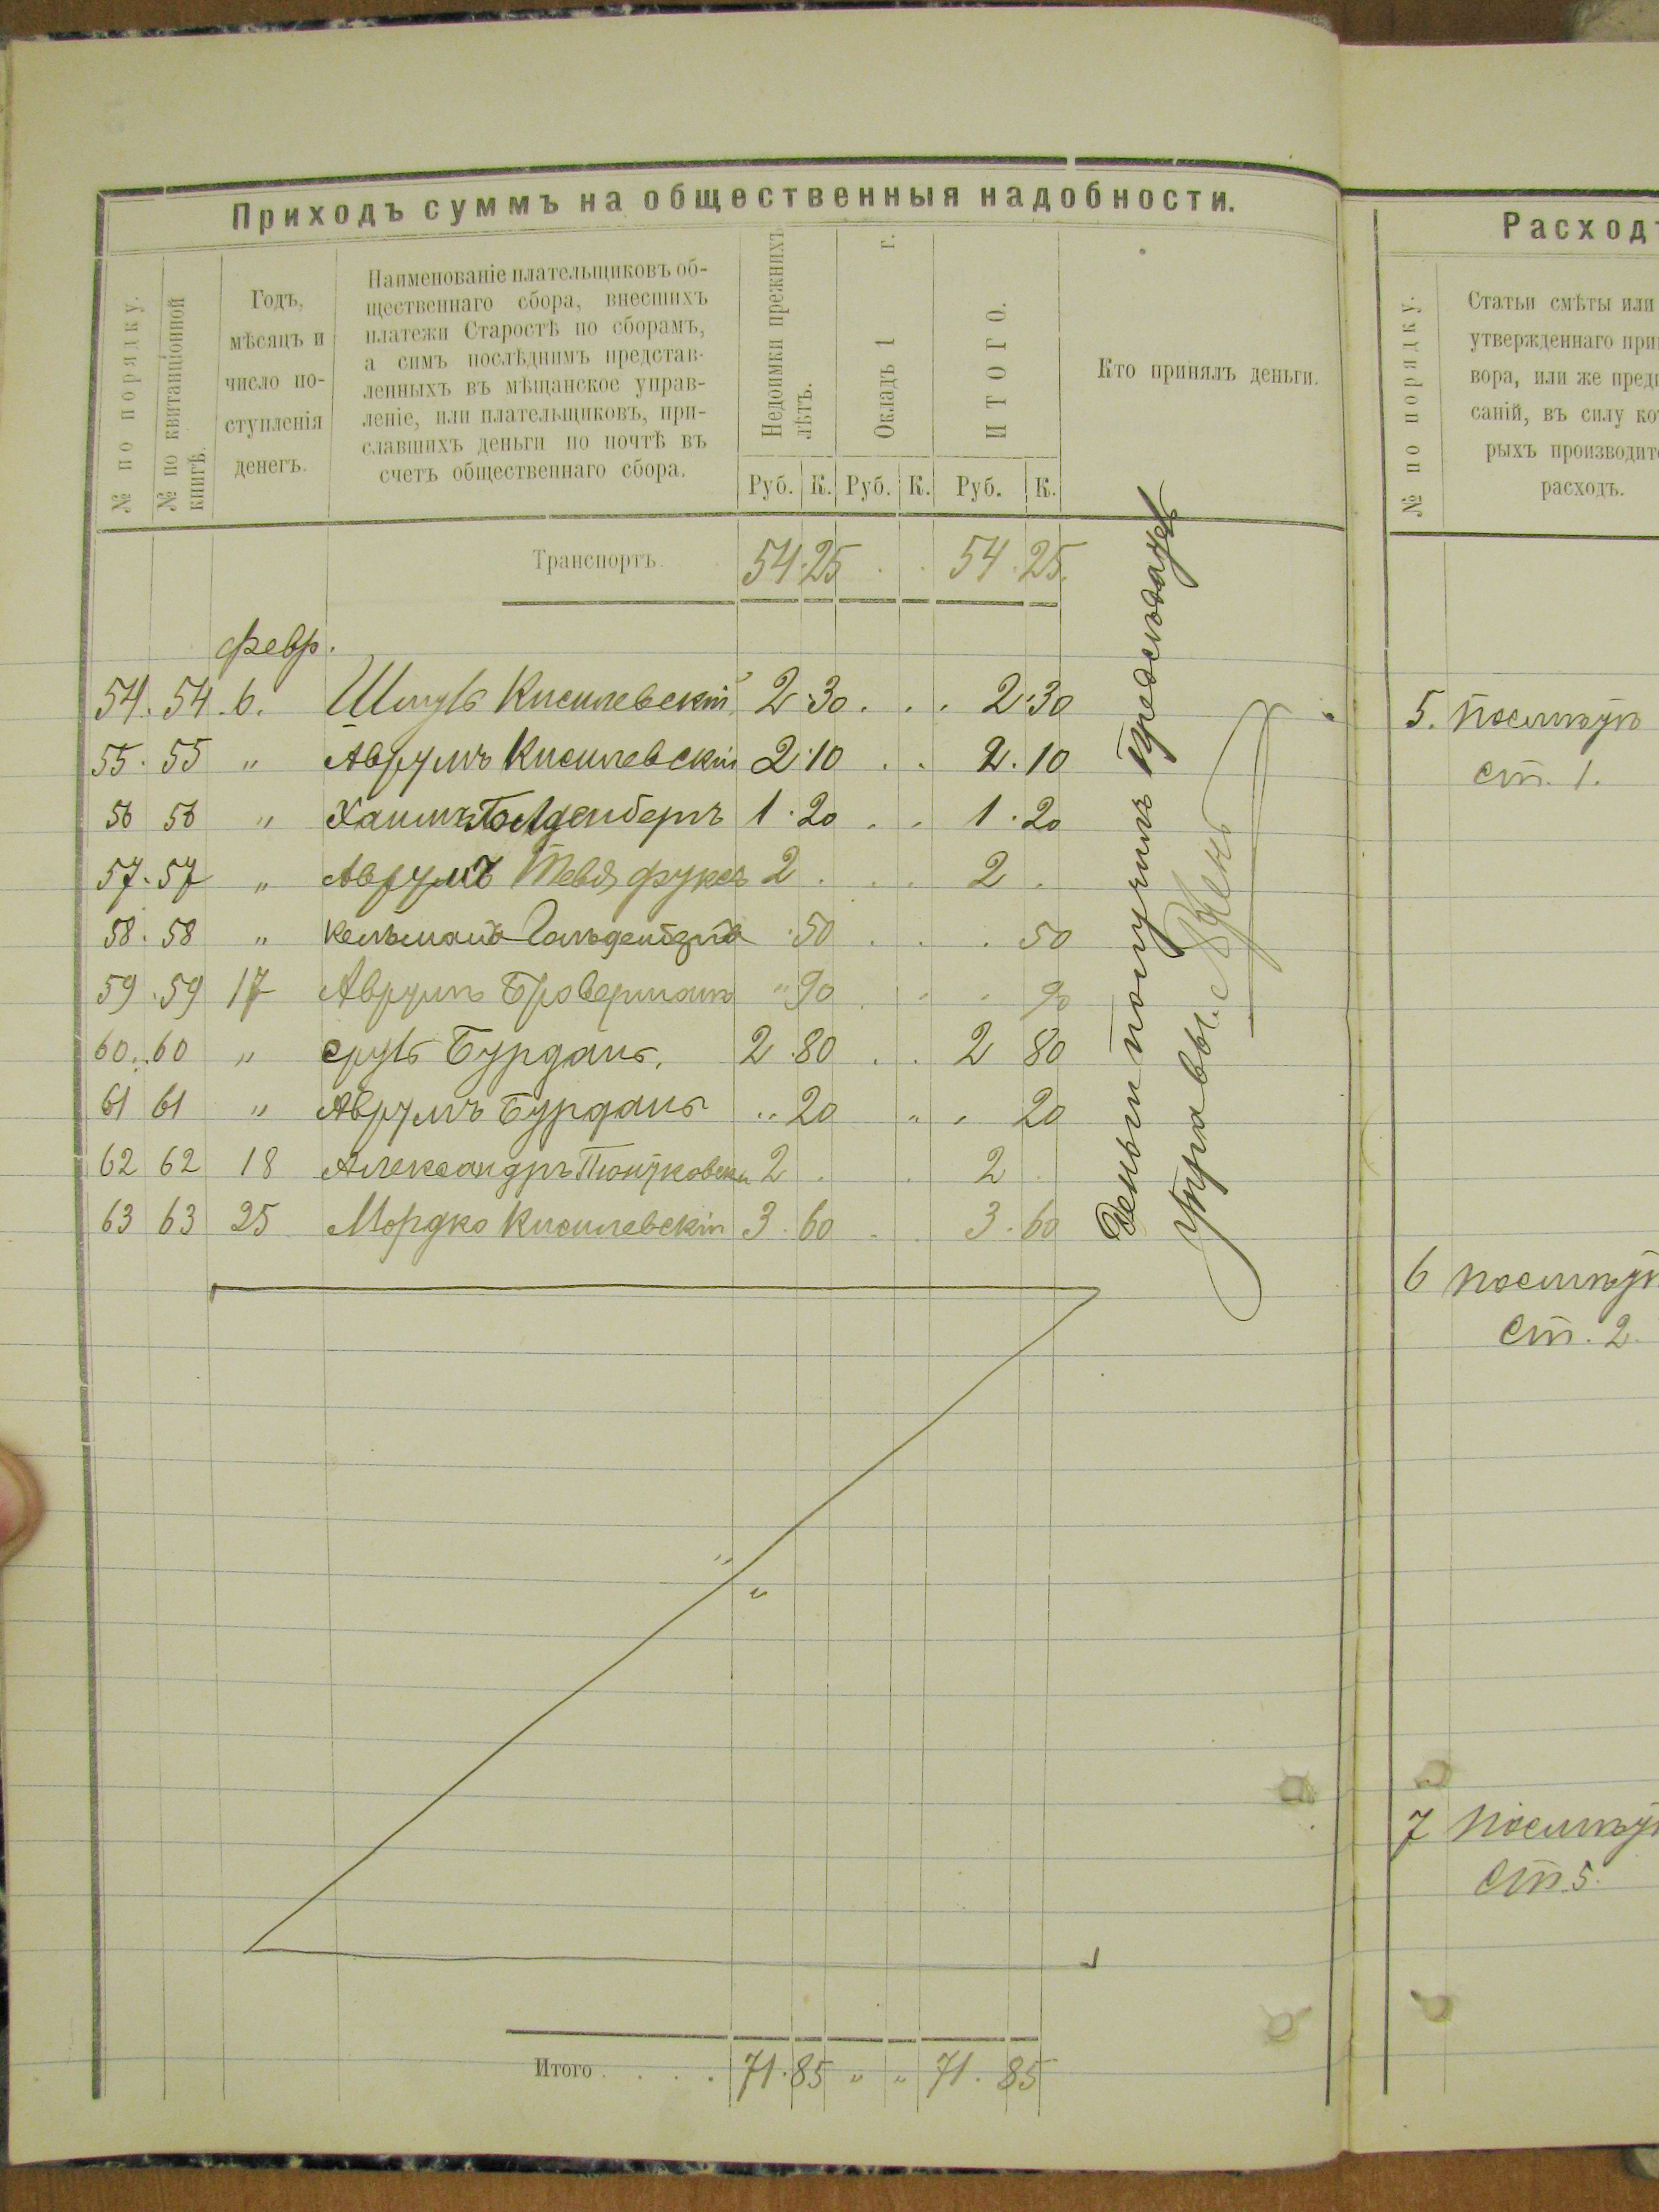 Приходъ суммъ на общественныя надобности.
№ по порядку.
№ по квитанціонной
книгѣ.
Годъ,
мѣсяцъ и
число по-
ступленія
денегъ.
Наименованіе плательщиковъ об-
щественнаго сбора, внесшихъ
платежи Старостѣ по сборамъ,
а симъ послѣднимъ представ-
ленныхъ въ мѣщанское управ-
леніе, или плательщиковъ, при-
славшихъ деньги по почтѣ въ
счетъ общественнаго сбора.
Недоимки прежнихъ
лѣтъ.
Окладъ 1 г.
ИТОГО.
Кто принялъ деньги.
Руб. К. Руб. К. Руб. К.
Транспортъ. 54.25 . . 54.25.
февр.
54. 54. 6. Шмуль Кисилевскій 2.30 . . . 2.30
55. 55 " Аврумъ Кисилевскій 2.10 . . 2.10
56 56 " Хаимъ Голденбергъ 1.20 . . 1.20
57. 57 " Аврумъ Тевя Фуксъ 2 . . . 2 .
58. 58 " .50 . . . 50
59. 59 17 Аврумъ Броверманъ " 90 . " . 90
60. 60 " Сруль Бурданъ. 2.80 . . 2 80
61 61 " Аврумъ Бурданъ " 20 " . 20
62 62 18 Александръ 2 . . 2 .
63 63 25 Мордко Кисилевскій 3.60 . . 3.60
Деньги получилъ Председатель
Управы.
Итого . . . . 71.85 " " 71.85
Расходъ
№ по порядку.
Статьи смѣты или
утвержденнаго при
вора, или же пред
саній, въ силу ко
рыхъ производит
расходъ.
5.
ст. 1.
6
ст. 2.
7
ст. 5.